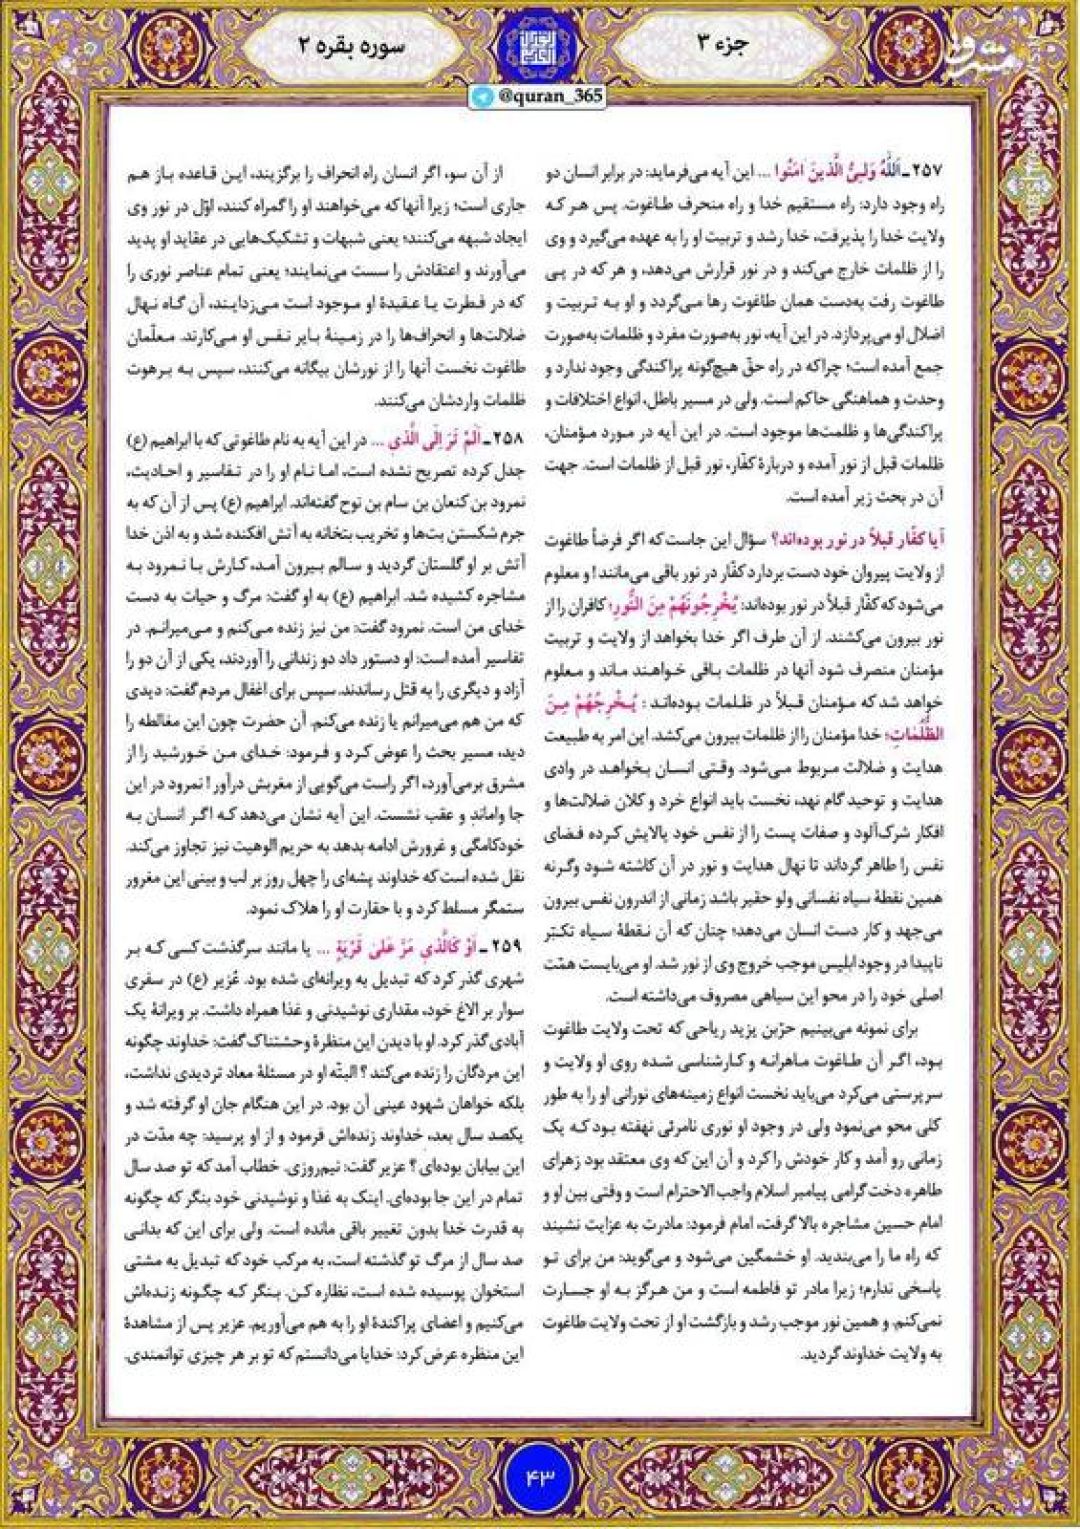 جزء ۳
سوره بقره ۲
مشرق
@quran_365
۲۵۷ـ اَللّٰهُ وَلِیُّ الَّذینَ امَنُوا ... این آیه می‌فرماید: در برابر انسان دو
راه وجود دارد: راه مستقیم خدا و راه منحرف طاغوت. پس هر که
ولایت خدا را پذیرفت، خدا رشد و تربیت او را به عهده می‌گیرد و وی
را از ظلمات خارج می‌کند و در نور قرارش می‌دهد، و هر که در پی
طاغوت رفت به‌دست همان طاغوت رها می‌گردد و او به تربیت و
اضلال او می‌پردازد. در این آیه، نور به‌صورت مفرد و ظلمات به‌صورت
جمع آمده است؛ چراکه در راه حقّ هیچ‌گونه پراکندگی وجود ندارد و
وحدت و هماهنگی حاکم است. ولی در مسیر باطل، انواع اختلافات و
پراکندگی‌ها و ظلمت‌ها موجود است. در این آیه در مورد مؤمنان،
ظلمات قبل از نور آمده و دربارهٔ کفّار، نور قبل از ظلمات است. جهت
آن در بحث زیر آمده است.
آیا کفّار قبلاً در نور بوده‌اند؟ سؤال این جاست که اگر فرضاً طاغوت
از ولایت پیروان خود دست بردارد کفّار در نور باقی می‌مانند! و معلوم
می‌شود که کفّار قبلاً در نور بوده‌اند: یُخْرِجُونَهُمْ مِنَ النُّورِ؛ کافران را از
نور بیرون می‌کشند. از آن طرف اگر خدا بخواهد از ولایت و تربیت
مؤمنان منصرف شود آنها در ظلمات باقی خواهند ماند و معلوم
خواهد شد که مؤمنان قبلاً در ظلمات بوده‌اند: یُخْرِجُهُمْ مِنَ
الظُّلُمَاتِ؛ خدا مؤمنان را از ظلمات بیرون می‌کشد. این امر به طبیعت
هدایت و ضلالت مربوط می‌شود. وقتی انسان بخواهد در وادی
هدایت و توحید گام نهد، نخست باید انواع خرد و کلان ضلالت‌ها و
افکار شرک‌آلود و صفات پست را از نفس خود پالایش کرده فضای
نفس را طاهر گرداند تا نهال هدایت و نور در آن کاشته شود وگرنه
همین نقطهٔ سیاه نفسانی ولو حقیر باشد زمانی از اندرون نفس بیرون
می‌جهد و کار دست انسان می‌دهد؛ چنان که آن نقطهٔ سیاه تکبّر
ناپیدا در وجود ابلیس موجب خروج وی از نور شد. او می‌بایست همّت
اصلی خود را در محو این سیاهی مصروف می‌داشته است.
برای نمونه می‌بینیم حرّبن یزید ریاحی که تحت ولایت طاغوت
بود، اگر آن طاغوت ماهرانه و کارشناسی شده روی او ولایت و
سرپرستی می‌کرد می‌باید نخست انواع زمینه‌های نورانی او را به طور
کلی محو می‌نمود ولی در وجود او نوری نامرئی نهفته بود که یک
زمانی رو آمد و کار خودش را کرد و آن این که وی معتقد بود زهرای
طاهره دخت گرامی پیامبر اسلام واجب الاحترام است و وقتی بین او و
امام حسین مشاجره بالا گرفت، امام فرمود: مادرت به عزایت نشیند
که راه ما را می‌بندید. او خشمگین می‌شود و می‌گوید: من برای تو
پاسخی ندارم؛ زیرا مادر تو فاطمه است و من هرگز به او جسارت
نمی‌کنم. و همین نور موجب رشد و بازگشت او از تحت ولایت طاغوت
به ولایت خداوند گردید.
از آن سو، اگر انسان راه انحراف را برگزیند، این قاعده باز هم
جاری است؛ زیرا آنها که می‌خواهند او را گمراه کنند، اوّل در نور وی
ایجاد شبهه می‌کنند؛ یعنی شبهات و تشکیک‌هایی در عقاید او پدید
می‌آورند و اعتقادش را سست می‌نمایند؛ یعنی تمام عناصر نوری را
که در فطرت یا عقیدهٔ او موجود است می‌زدایند، آن گاه نهال
ضلالت‌ها و انحراف‌ها را در زمینهٔ بایر نفس او می‌کارند. معلّمان
طاغوت نخست آنها را از نورشان بیگانه می‌کنند، سپس به برهوت
ظلمات واردشان می‌کنند.
۲۵۸ـ اَلَمْ تَرَ اِلَی الَّذی ... در این آیه به نام طاغوتی که با ابراهیم (ع)
جدل کرده تصریح نشده است، اما نام او را در تفاسیر و احادیث،
نمرود بن کنعان بن سام بن نوح گفته‌اند. ابراهیم (ع) پس از آن که به
جرم شکستن بت‌ها و تخریب بتخانه به آتش افکنده شد و به اذن خدا
آتش بر او گلستان گردید و سالم بیرون آمد، کارش با نمرود به
مشاجره کشیده شد. ابراهیم (ع) به او گفت: مرگ و حیات به دست
خدای من است. نمرود گفت: من نیز زنده می‌کنم و می‌میرانم. در
تفاسیر آمده است: او دستور داد دو زندانی را آوردند، یکی از آن دو را
آزاد و دیگری را به قتل رساندند. سپس برای اغفال مردم گفت: دیدی
که من هم می‌میرانم یا زنده می‌کنم. آن حضرت چون این مغالطه را
دید، مسیر بحث را عوض کرد و فرمود: خدای من خورشید را از
مشرق برمی‌آورد، اگر راست می‌گویی از مغربش درآور! نمرود در این
جا واماند و عقب نشست. این آیه نشان می‌دهد که اگر انسان به
خودکامگی و غرورش ادامه بدهد به حریم الوهیت نیز تجاوز می‌کند.
نقل شده است که خداوند پشه‌ای را چهل روز بر لب و بینی این مغرور
ستمگر مسلط کرد و با حقارت او را هلاک نمود.
۲۵۹ـ اَوْ کَالَّذی مَرَّ عَلیٰ قَرْیَةٍ ... یا مانند سرگذشت کسی که بر
شهری گذر کرد که تبدیل به ویرانه‌ای شده بود. عُزیر (ع) در سفری
سوار بر الاغ خود، مقداری نوشیدنی و غذا همراه داشت. بر ویرانهٔ یک
آبادی گذر کرد. او با دیدن این منظرهٔ وحشتناک گفت: خداوند چگونه
این مردگان را زنده می‌کند؟ البتّه او در مسئلهٔ معاد تردیدی نداشت،
بلکه خواهان شهود عینی آن بود. در این هنگام جان او گرفته شد و
یکصد سال بعد، خداوند زنده‌اش فرمود و از او پرسید: چه مدّت در
این بیابان بوده‌ای؟ عزیر گفت: نیم‌روزی. خطاب آمد که تو صد سال
تمام در این جا بوده‌ای. اینک به غذا و نوشیدنی خود بنگر که چگونه
به قدرت خدا بدون تغییر باقی مانده است. ولی برای این که بدانی
صد سال از مرگ تو گذشته است، به مرکب خود که تبدیل به مشتی
استخوان پوسیده شده است، نظاره کن. بنگر که چگونه زنده‌اش
می‌کنیم و اعضای پراکندهٔ او را به هم می‌آوریم. عزیر پس از مشاهدهٔ
این منظره عرض کرد: خدایا می‌دانستم که تو بر هر چیزی توانمندی.
۴۳